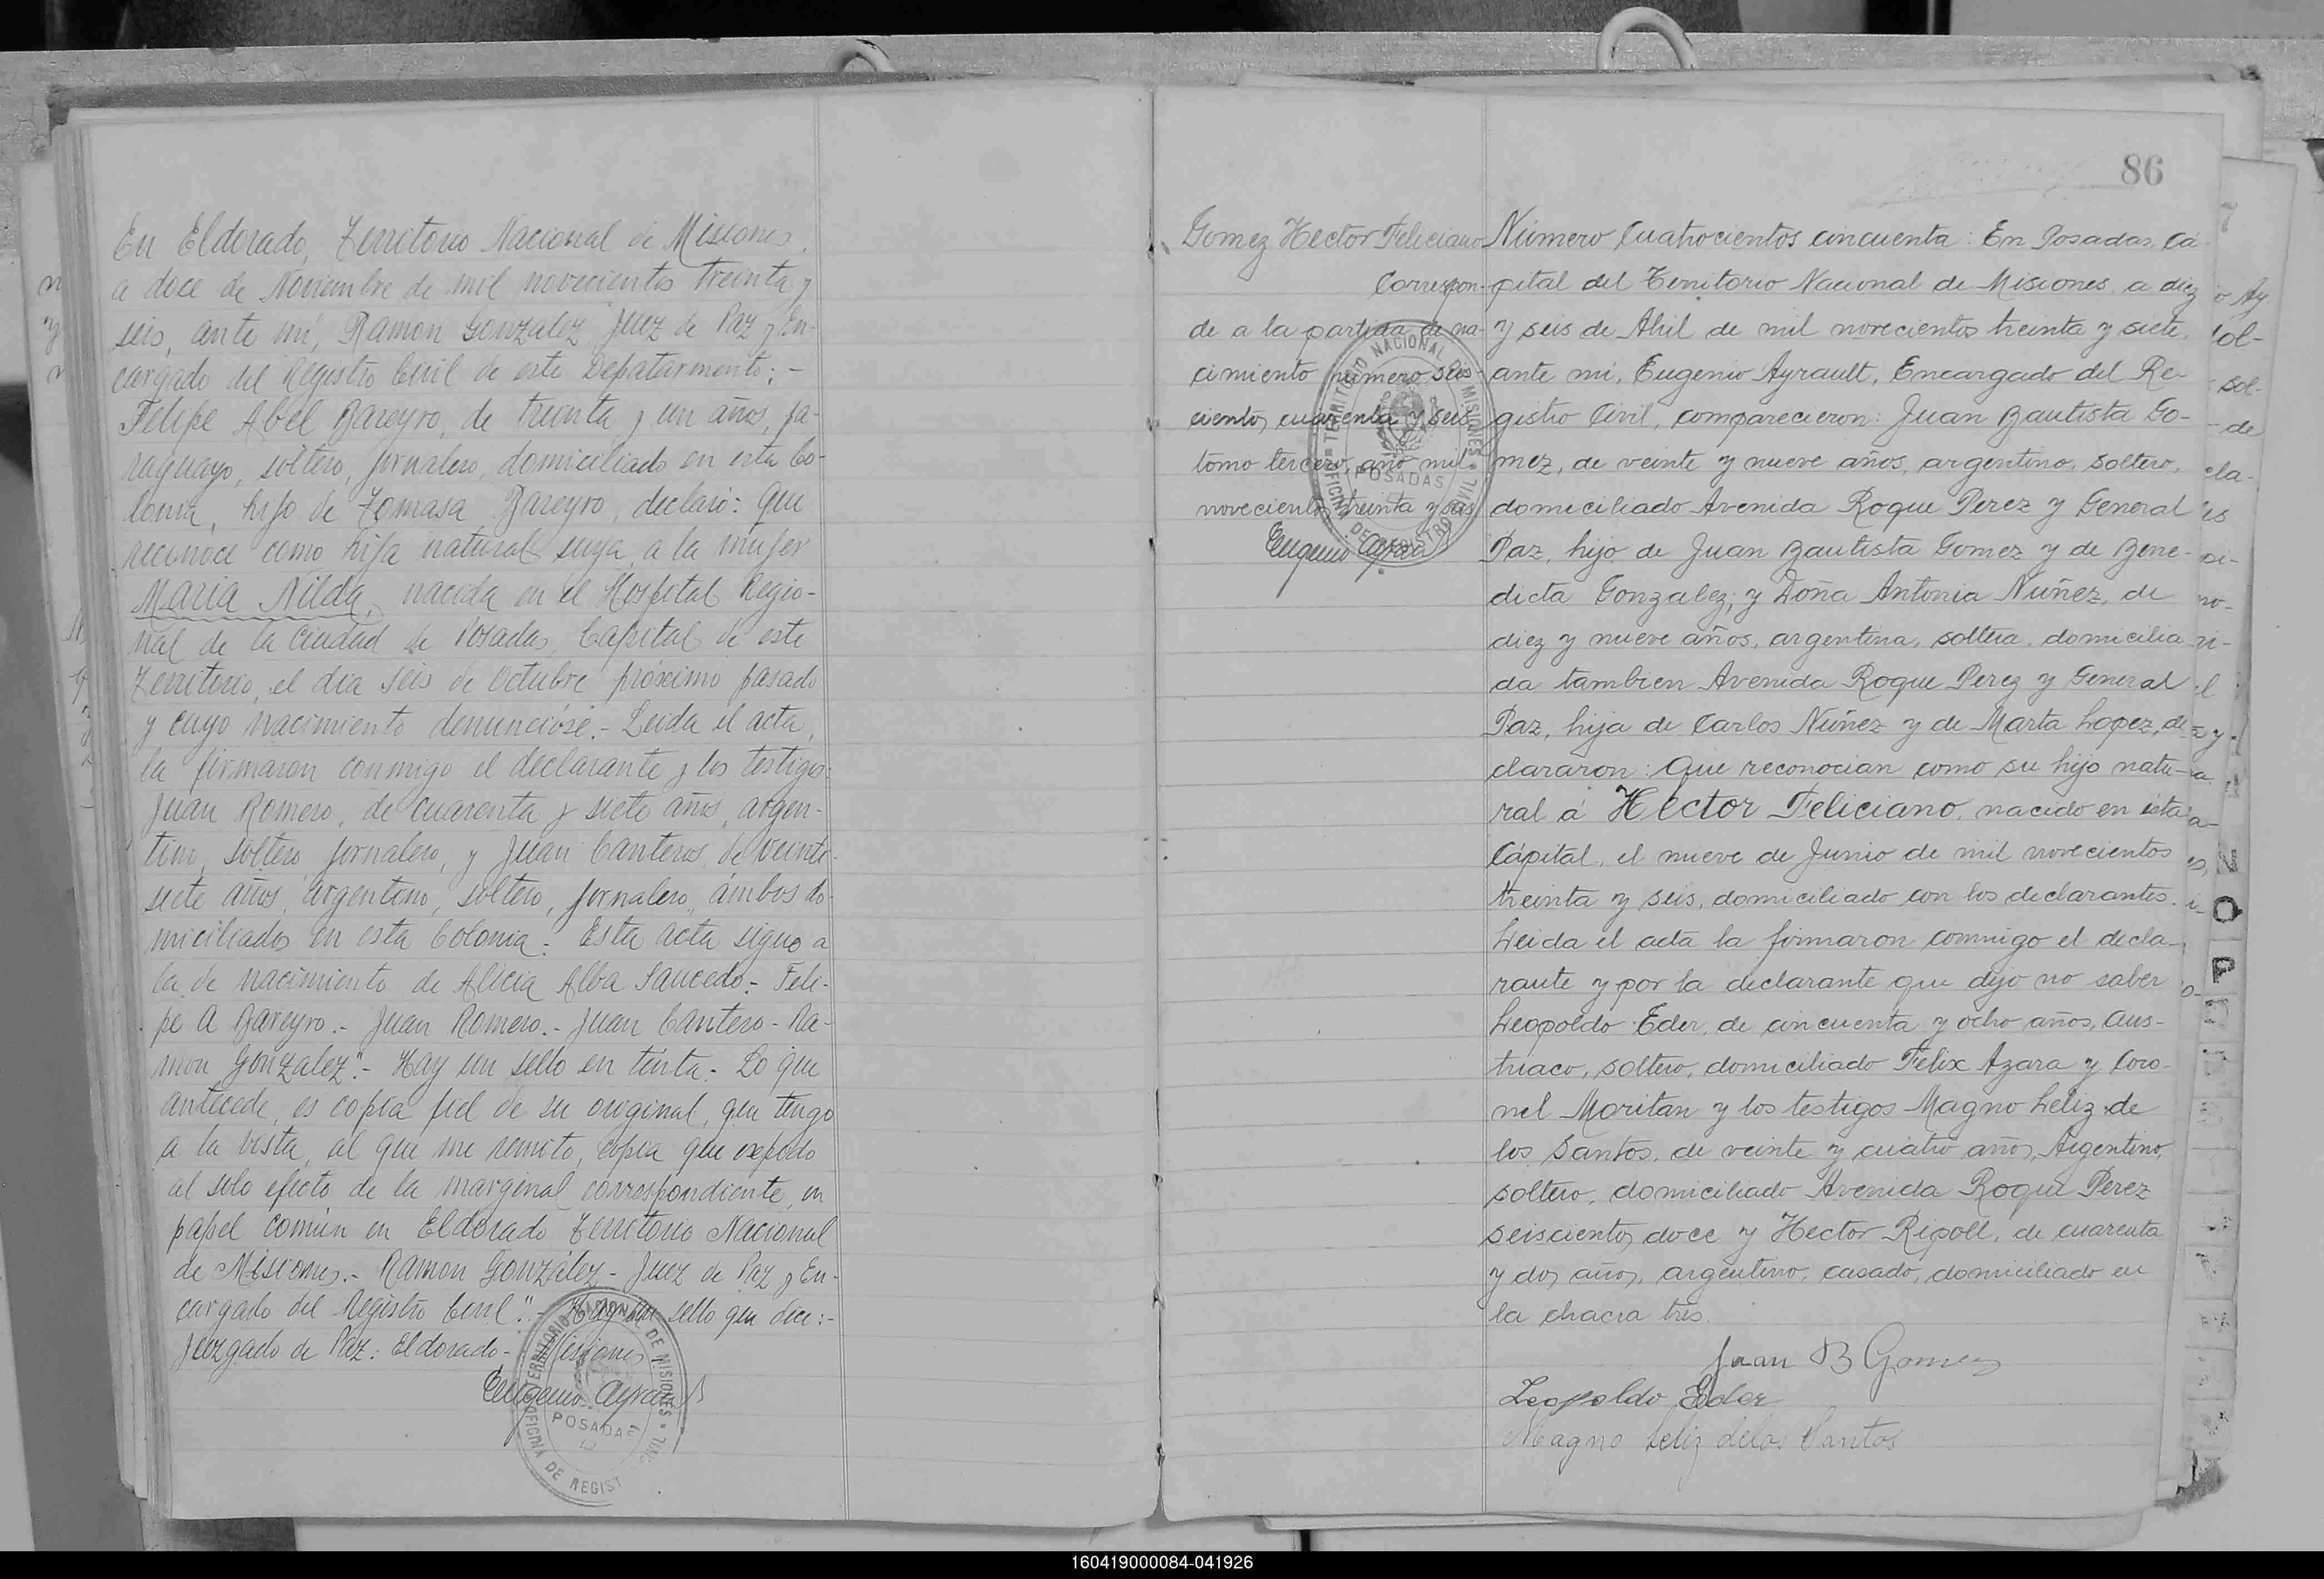 En Eldorado, Territorio Nacional de Misiones,
a doce de Noviembre de mil novecientos treinta y
seis, ante mí, Ramon Gonzalez, Juez de Paz y En-
cargado del Registro Civil de este Depatarmento: -
Felipe Abel Bareyro, de treinta y un años, pa-
raguayo, soltero, jornalero, domiciliado en esta Co-
lonia, hijo de Tomasa Bareyro, declaró: Que
reconoce como hija natural suya, a la mujer
Maria Nilda, nacida en el Hospital Regio-
nal de la Ciudad de Posadas, Capital de este
Territorio, el dia seis de Octubre próximo pasado
y cuyo nacimiento denuncióse.- Leida el acta,
la firmaron conmigo el declarante y los testigos:
Juan Romero, de cuarenta y siete años, argen-
tino, soltero, jornalero, y Juan Canteros, de veinti-
siete años, argentino, soltero, jornalero, ámbos do-
miciliados en esta Colonia.- Esta acta sigue a
la de nacimiento de Alicia Alba Saucedo.- Feli-
pe A Bareyro.- Juan Romero.- Juan Cantero - Ra-
mon Gonzalez".- Hay un sello en tinta.- Lo que
antecede, es copia fiel de su original, que tengo
a la vista, al que me remito, copia que expido
al solo efecto de la marginal correspondiente, en
papel común en Eldorado Territorio Nacional
de Misiones.- Ramon González - Juez de Paz y En-
cargado del Registro Civil".- Hay un sello que dice:-
Juzgado de Paz: Eldorado - Misiones
Eugenio Ayrault
TERRITORIO NACIONAL DE MISIONES
POSADAS
OFICINA DE REGISTRO CIVIL
86
Gomez Hector Feliciano
Correspon-
de a la partida de na-
cimiento número seis-
cientos cuarenta y seis
tomo tercero, año mil
novecientos treinta y seis
Eugenio Ayrault
TERRITORIO NACIONAL DE MISIONES
POSADAS
OFICINA DE REGISTRO CIVIL
Número Cuatrocientos cincuenta: En Posadas, Ca-
pital del Territorio Nacional de Misiones, a diez
y seis de Abril de mil novecientos treinta y siete,
ante mi, Eugenio Ayrault, Encargado del Re-
gistro Civil, comparecieron: Juan Bautista Go-
mez, de veinte y nueve años, argentino, soltero,
domiciliado Avenida Roque Perez y General
Paz, hijo de Juan Bautista Gomez y de Bene-
dicta Gonzalez; y Doña Antonia Nuñez, de
diez y nueve años, argentina, soltera, domicilia
da tambien Avenida Roque Perez y General
Paz, hija de Carlos Nuñez y de Marta Lopez, de-
clararon: Que reconocian como su hijo natu-
ral á Hector Feliciano, nacido en ésta
Cápital, el nueve de Junio de mil novecientos
treinta y seis, domiciliado con los declarantes.
Leida el acta la firmaron conmigo el decla-
rante y por la declarante que dijo no saber
Leopoldo Eder, de cincuenta y ocho años, aus-
triaco, soltero, domiciliado Felix Azara y Coro-
nel Moritan y los testigos Magno Leliz de
los Santos, de veinte y cuatro años, Argentino,
soltero, domiciliado Avenida Roque Perez
seiscientos doce y Hector Ripoll, de cuarenta
y dos años, argentino, casado, domiciliado en
la chacra tres.
Juan B Gomez
Leopoldo Eder
Magno Leliz de los Santos
N
O
P
160419000084-041926